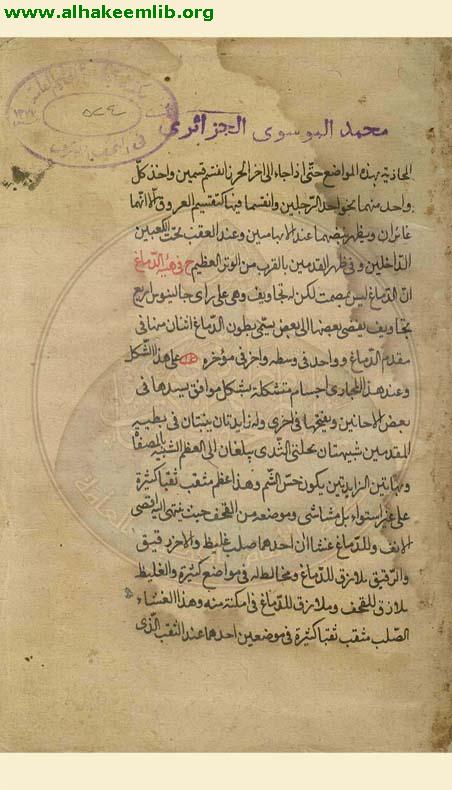 www.alhakeemlib.org
محمد الموسوى الجزائرى
المحاذية بهذه المواضع حتى اذا جاء الى اخر الخرز انقسم قسمين واخذ كل
واحد منهما نحو احد الرجلين وانقسما فيها كتقسيم العروق الا انهما
غائران ويظهر نبضهما عند الابهامين وعند العقب تحت الكعبين
الداخلين وفى ظهر القدمين بالقرب من الوتر العظيم ح فى هيئة الدماغ
ان الدماغ ليس بمصمت لكن له تجاويف وهى على راى جالينوس اربع
تجاويف يفضى بعضها الى بعض يسمى بطون الدماغ اثنان منها فى
مقدم الدماغ وواحد فى وسطه واخر فى مؤخره على هذا الشكل
وعند هذا المجارى اجسام متشكلة بشكل موافق ليسدها فى
بعض الاحايين ويفتحها فى اخرى وله زايدتان ينبتان فى بطنيه
المقدمين شبيهتان بحلمتى الثدى يبلغان الى العظم الشبيه بالمصفاة
وبهاتين الزايدتين يكون حس الشم وهذا اعظم مثقب ثقبا كثيرة
على غير استواء بل مشاشى وموضعه من القحف حيث ينتهى اليه اقصى
الانف وللدماغ غشاان احدهما صلب غليظ والاخر رقيق
والرقيق ملازق للدماغ ومخالط له فى مواضع كثيرة والغليظ
ملازق للقحف وملازق للدماغ فى امكنة منه وهذا الغشاء
الصلب مثقب ثقبا كثيرة فى موضعين احدهما عند الثقب الذى